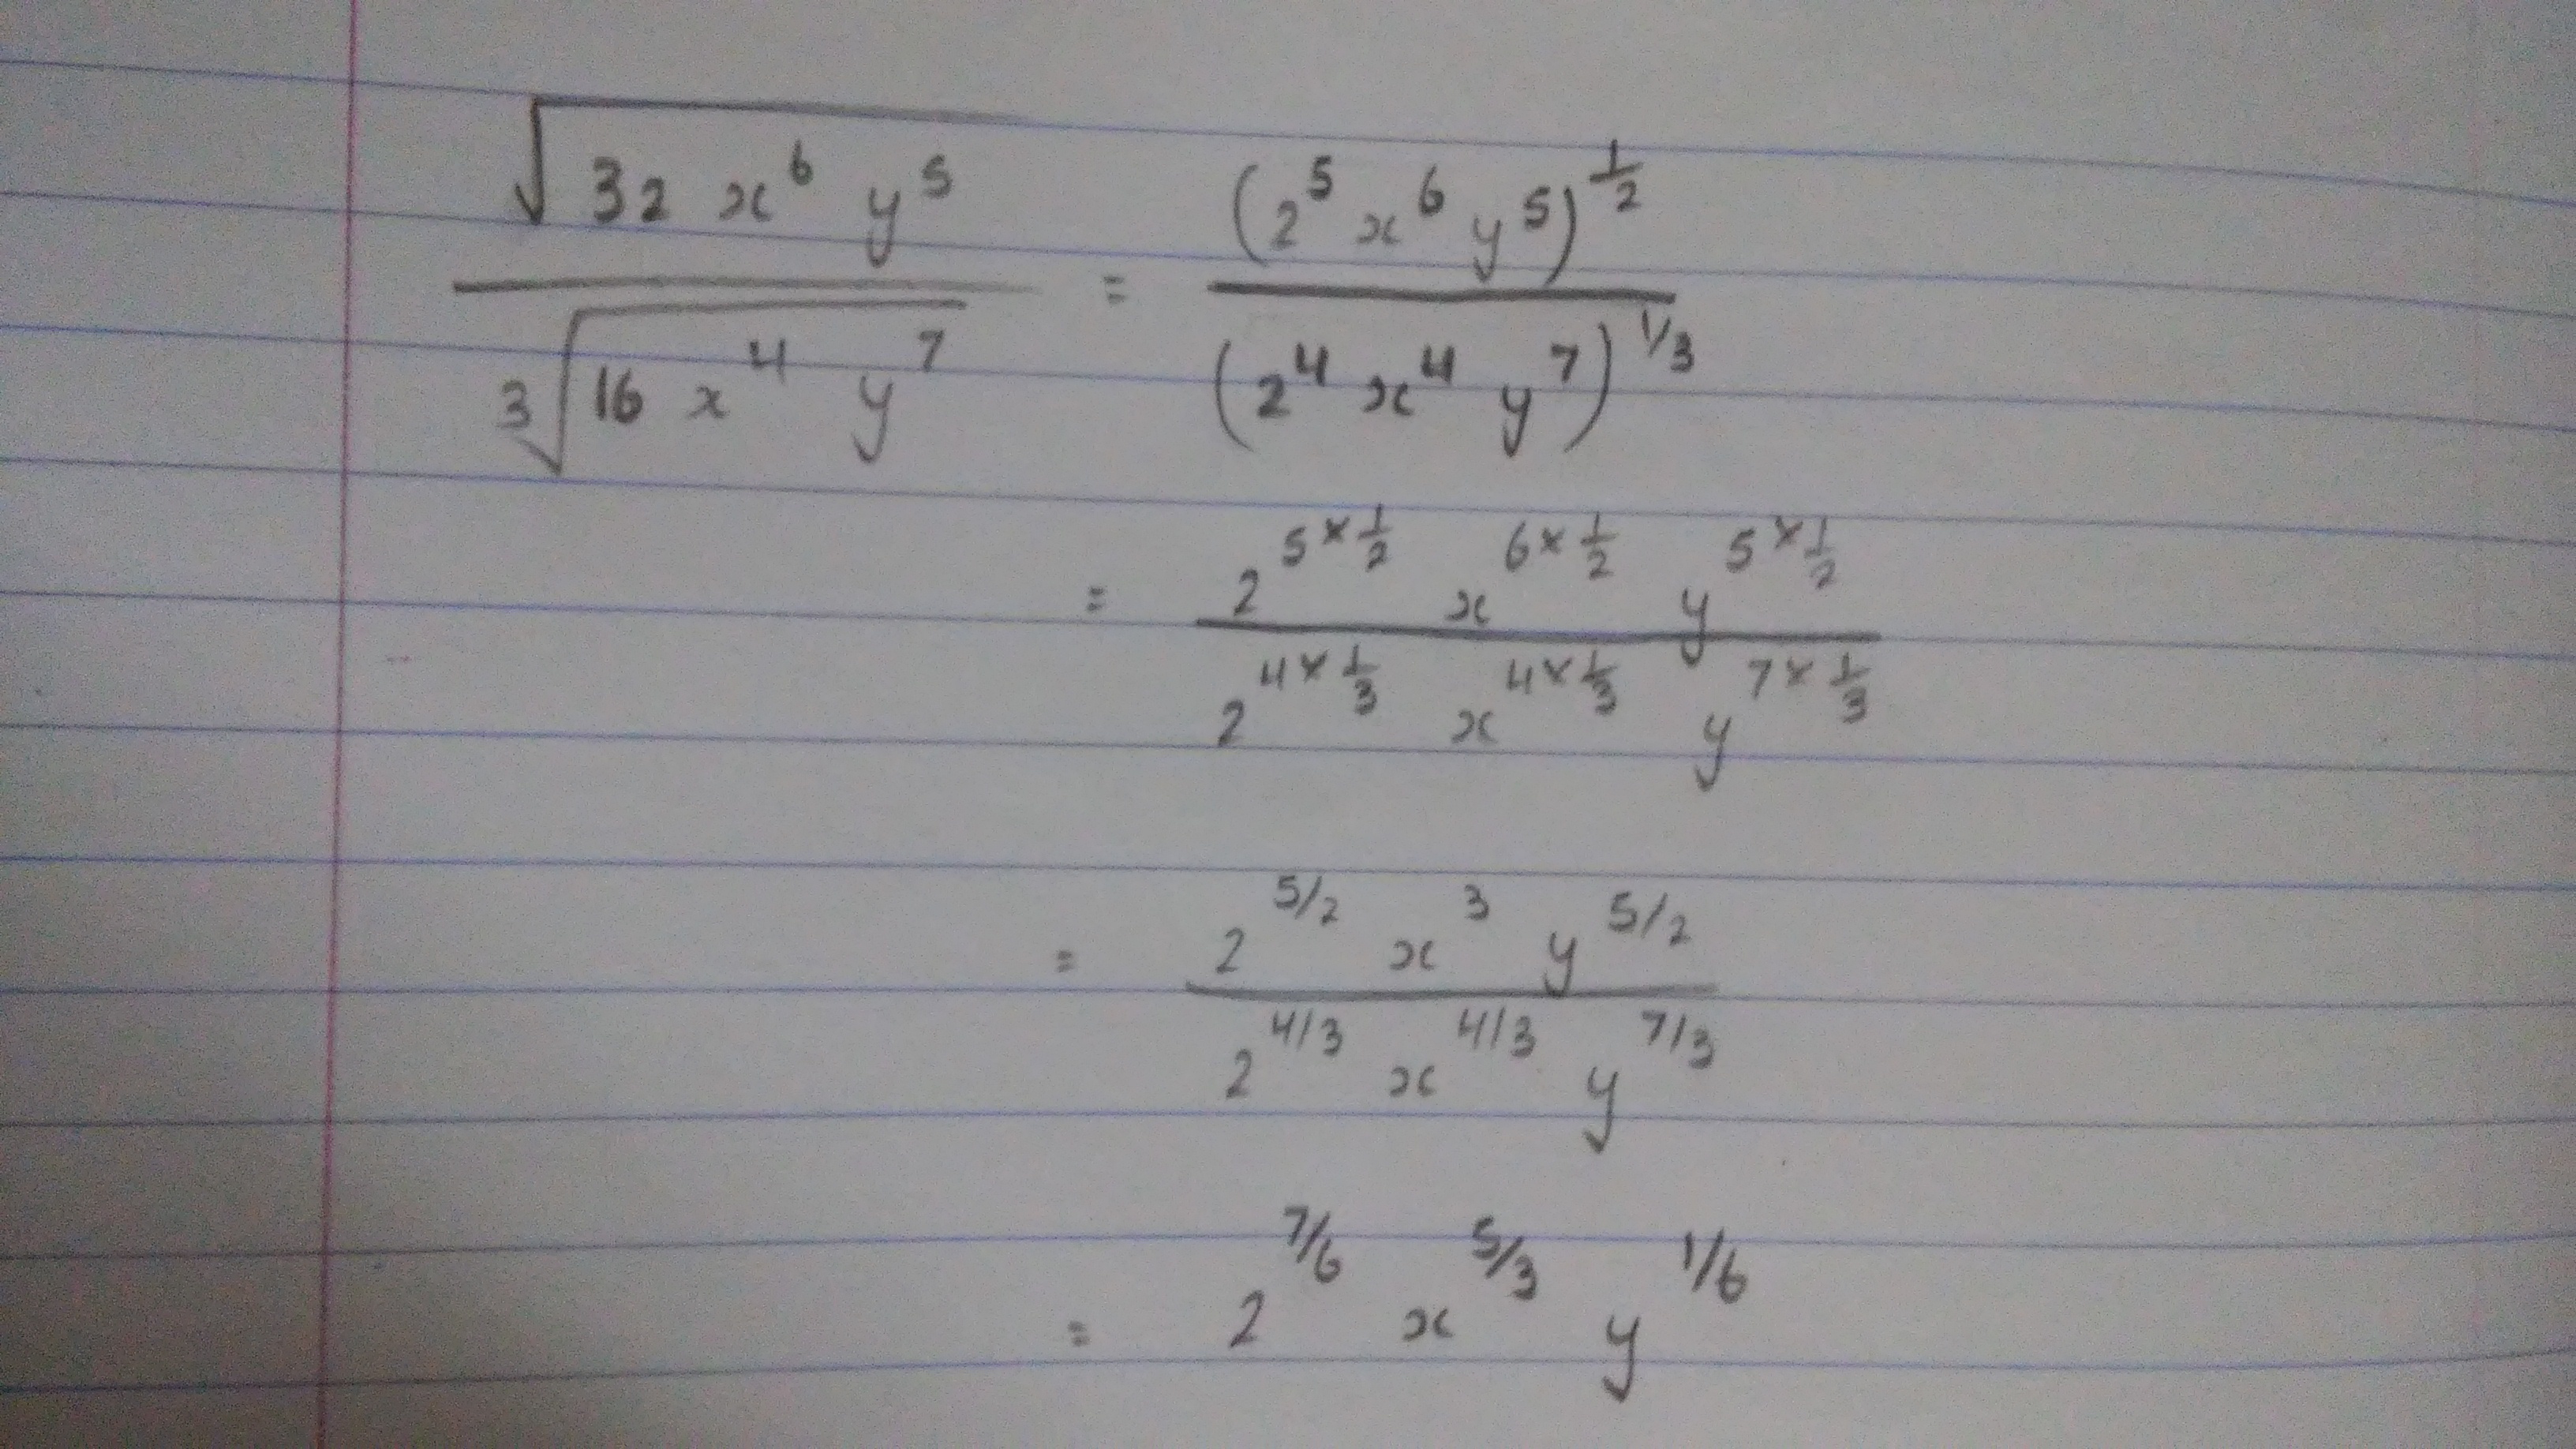 √(32 x⁶ y⁵) / ³√(16 x⁴ y⁷) = (2⁵ x⁶ y⁵)^(1/2) / (2⁴ x⁴ y⁷)^(1/3)
= 2^(5×1/2) x^(6×1/2) y^(5×1/2) / 2^(4×1/3) x^(4×1/3) y^(7×1/3)
= 2^(5/2) x³ y^(5/2) / 2^(4/3) x^(4/3) y^(7/3)
= 2^(7/6) x^(5/3) y^(1/6)